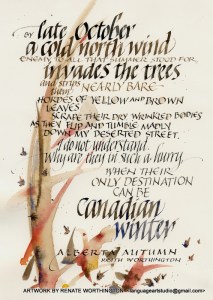 BY late October
a cold north wind
ENEMY TO ALL THAT SUMMER STOOD FOR,
invades the trees
and strips
them NEARLY BARE
HORDES OF YELLOW AND BROWN
LEAVES
SCRAPE THEIR DRY WRINKLED BODIES
AS THEY FLIP AND TUMBLE AMBLY
DOWN MY DESERTED STREET.
I do not understand
Why are they in such a hurry
WHEN THEIR
ONLY DESTINATION
CAN BE
Canadian
winter
ALBERTA AUTUMN
KEITH WORTHINGTON
ARTWORK BY RENATE WORTHINGTON <languageartstudio@gmail.com>